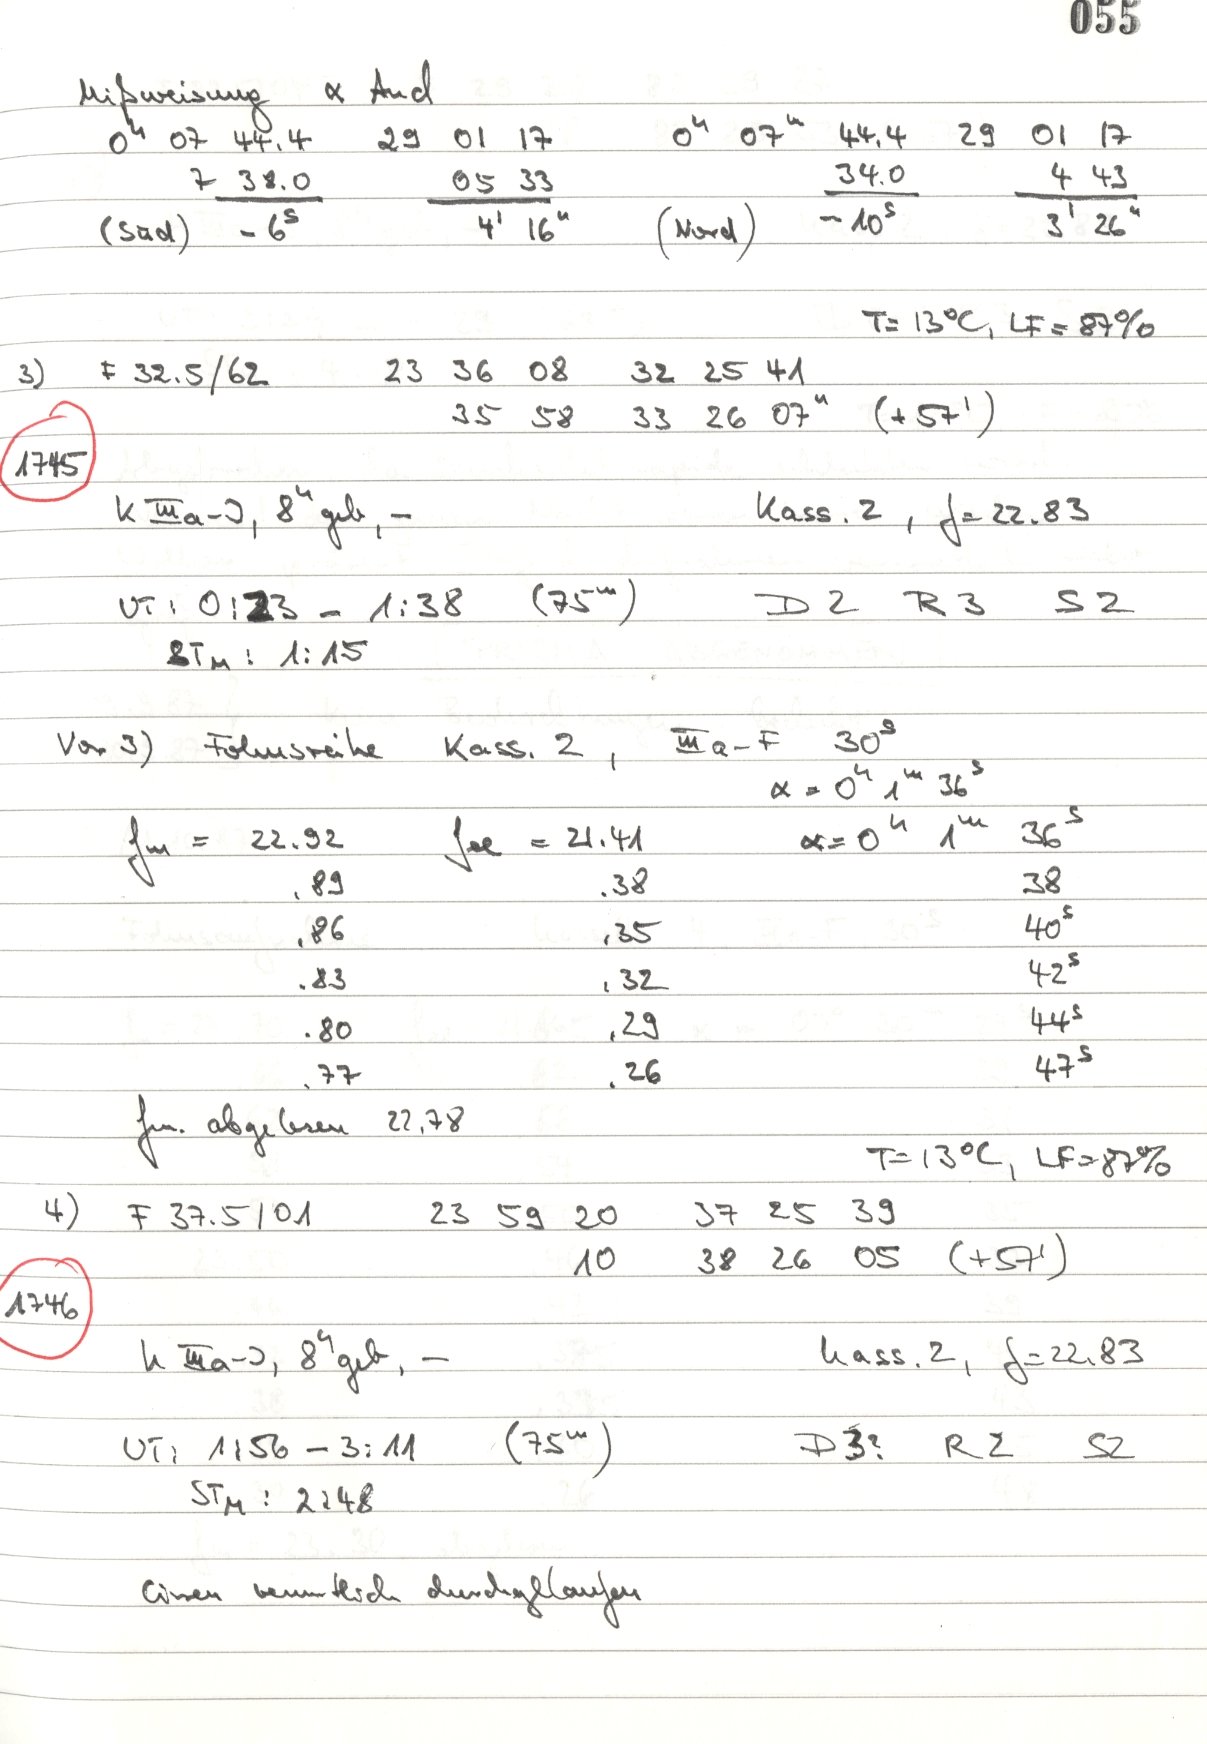 055
Mißweisung α And
0ʰ 07 44.4 29 01 17 0ʰ 07ᵐ 44.4 29 01 17
7 38.0 05 33 34.0 4 43
(Süd) -6ˢ 4' 16" (Nord) -10ˢ 3' 26"
T=13°C, LF=87%
3) F 32.5/62 23 36 08 32 25 41
35 58 33 26 07" (+57')
1745
k IIIa-J, 8ʰ geb, - Kass. 2, f=22.83
UT: 0:23 - 1:38 (75ᵐ) D2 R3 S2
STM: 1:15
Vor 3) Fokusreihe Kass. 2, IIIa-F 30ˢ
α = 0ʰ 1ᵐ 36ˢ
fm = 22.92 = 21.41 α = 0ʰ 1ᵐ 36ˢ
.89 .38 38
.86 .35 40ˢ
.83 .32 42ˢ
.80 .29 44ˢ
.77 .26 47ˢ
fm. abgelesen 22,78
T=13°C, LF=87%
4) F 37.5/01 23 59 20 37 25 39
10 38 26 05 (+57')
1746
k IIIa-J, 8ʰ geb, - Kass. 2, f=22.83
UT: 1:56 - 3:11 (75ᵐ) D3? R2 S2
STM: 2:48
Cirren vermutlich durchgelaufen